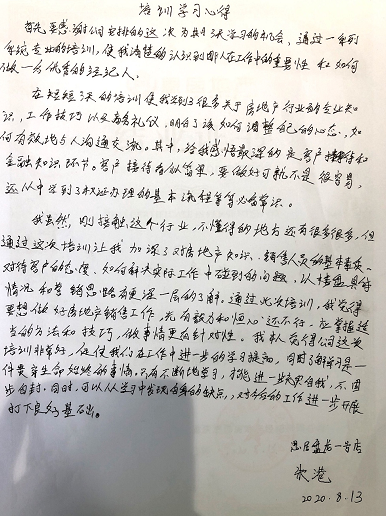 培训学习心得
首先要感谢公司安排的这次为其4天学习的机会，通过一系列
系统专业的培训，使我清楚的认识到人在工作中的重要性和如何
做一名优秀的经纪人。
在短短3天的培训使我学到了很多关于房地产行业的专业知
识，工作技巧以及商务礼仪，明白了该如何调整自己的心态，如
何有效地与人沟通交流。其中，给我感悟最深的是客户接待和
金融知识环节。客户接待看似简单，要做好可就不是很容易，
还从中学到了权证办理的基本流程等等必备常识。
我虽然，刚接触这个行业，不懂得的地方还有很多很多，但
通过这次培训让我加深了对房地产知识、销售人员的基本素质、
对待客户的态度、如何解决实际工作中碰到的问题，以情盘具待
情况和营销思路有更深一层的了解。通过此次培训，我觉得
要想做好房地产销售工作，光有毅力和恒心还不行，应掌握适
当的方法和技巧，做事情更有针对性。我本人觉得公司这次
培训非常好，促使我们在工作中进一步的学习提知，同时了解学习是一
件贯穿生命始终的事情，只有不断地学习，才能进一步充实自我，不固
步自封，同时，可以从学习中发现自身的缺点，对今后的工作进一步开展
打下良好基础。
思居盘龙一号店
张港
2020.8.13